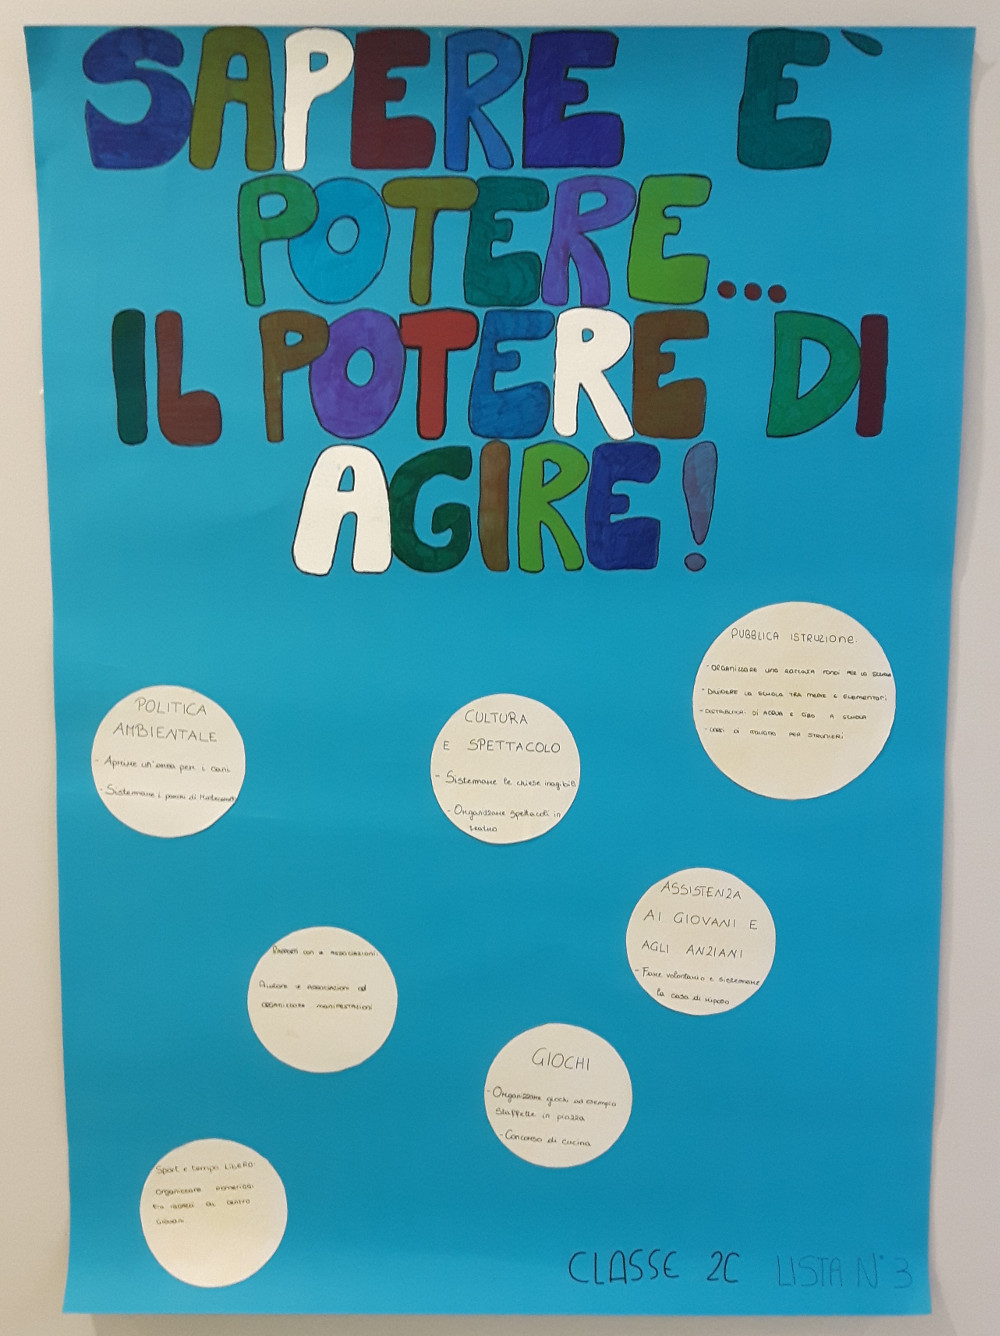 SAPERE E'
POTERE...
IL POTERE DI
AGIRE!
PUBBLICA ISTRUZIONE.
- ORGANIZZARE UNA RACCOLTA FONDI PER LA SCUOLA
- DIVIDERE LA SCUOLA TRA MEDIE E ELEMENTARI
DI ACQUA E CIBO A SCUOLA
- CORSI DI PER STRANIERI
POLITICA
AMBIENTALE
- Aprire un'area per i cani
- Sistemare i parchi di
CULTURA
E SPETTACOLO
- Sistemare le chiese inagibili
- Organizzare spettacoli in
teatro
ASSISTENZA
AI GIOVANI E
AGLI ANZIANI
- Fare volontario e sistemare
la casa di riposo
RAPPORTI con le ASSOCIAZIONI:
Aiutare le ASSOCIAZIONI ad
ORGANIZZARE MANIFESTAZIONI
GIOCHI
- Organizzare giochi ad esempio
staffette in piazza
- Concorso di cucina
Sport e tempo LIBERO:
ORGANIZZARE POMERIGGI
AL CENTRO
GIOVANI
CLASSE 2C LISTA N° 3